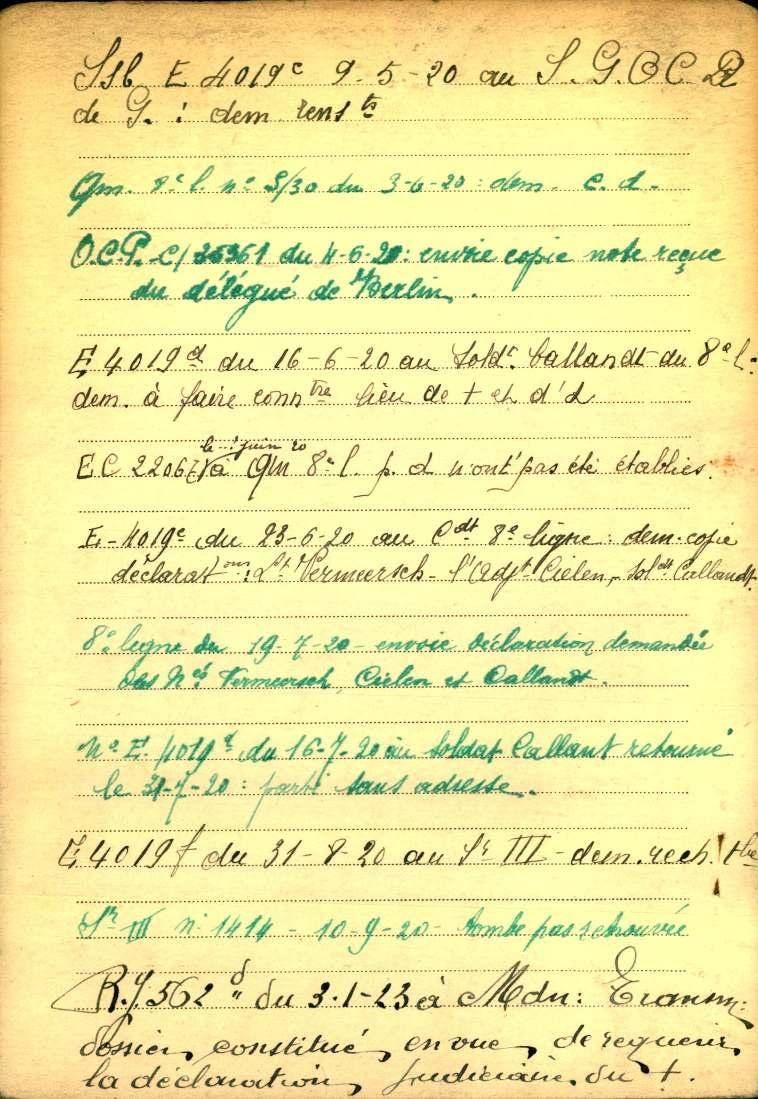 E 4019c 9-5-20 au S. G.
de G. : dem. rensts
Qm. 8e l. no S/30 du 3-6-20: dem. c. d.
O.C.P. C/ du 4-6-20: envoie copie note reçue
du délégué de Berlin.
E 4019d du 16-6-20 au Soldt. Callandt du 8e l.
dem. à faire conntre lieu de + et d'I
le juin 20
EC 22067 à Qm 8e l. p. d n'ont pas été établies.
E-4019e du 23-6-20 au Cdt 8e ligne: dem. copie
déclaratons: Lt Vermeersch - l'Adjt Cielen, - Soldt Callandt.
8e ligne du 19-7-20 - envoie déclaration demandée
des Vermeersch, Cielen et Callandt.
No E. 4019d du 16-7-20 au Soldat Callant retourné
le 31-7-20: parti sans adresse.
E 4019f du 31-8-20 au Sr III - dem. rech. tbe
Sr III no 1414 - 10-9-20 - tombe pas retrouvée
R.J. 562 du 3-1-23 à Mdn: Transm.
dossier, constitué, en vue, de requérir,
la déclaration, judiciaire du +.